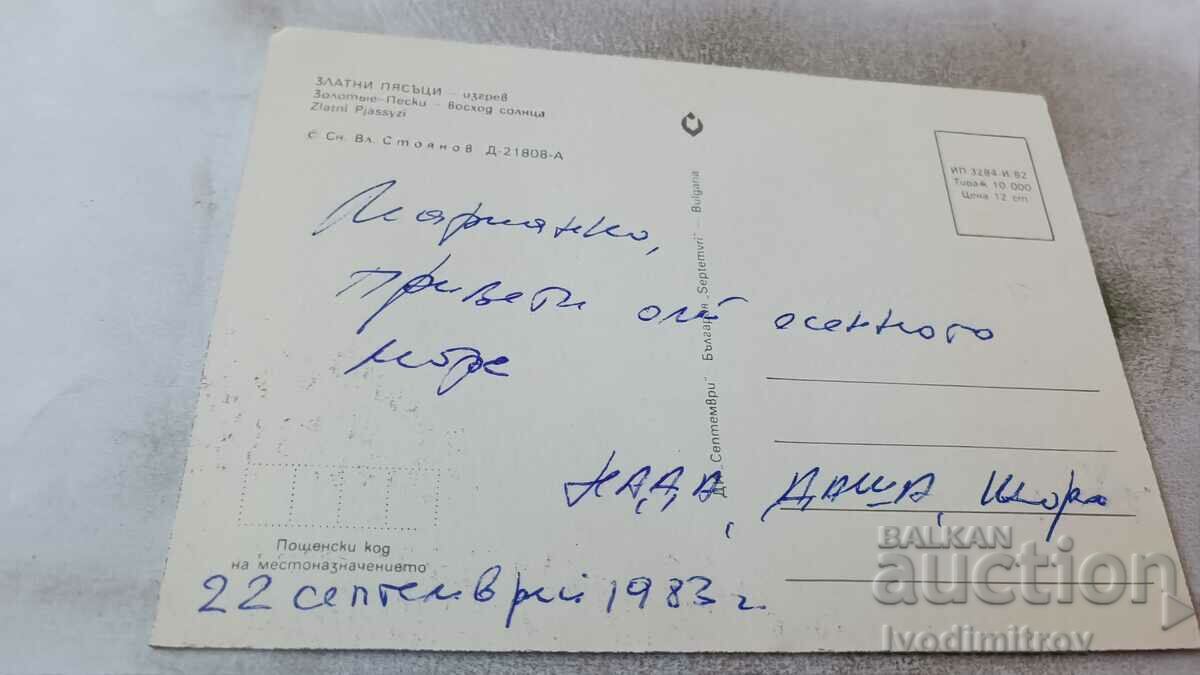 ЗЛАТНИ ПЯСЪЦИ – изгрев
Золотые-Пески – восход солнца
Zlatni Pjassyzi
© Сн. Вл. Стоянов Д-21808-А
ИП 3284-И-82
Тираж 10 000
Цена 12 ст
ДП „Септември" България „Septemvri" – Bulgaria
Марианко,
Привети от есенното
море
НАДА, ДАША, Шора
Пощенски код
на местоназначението
22 септември 1983 г.
BALKAN
auction
Ivodimitrov